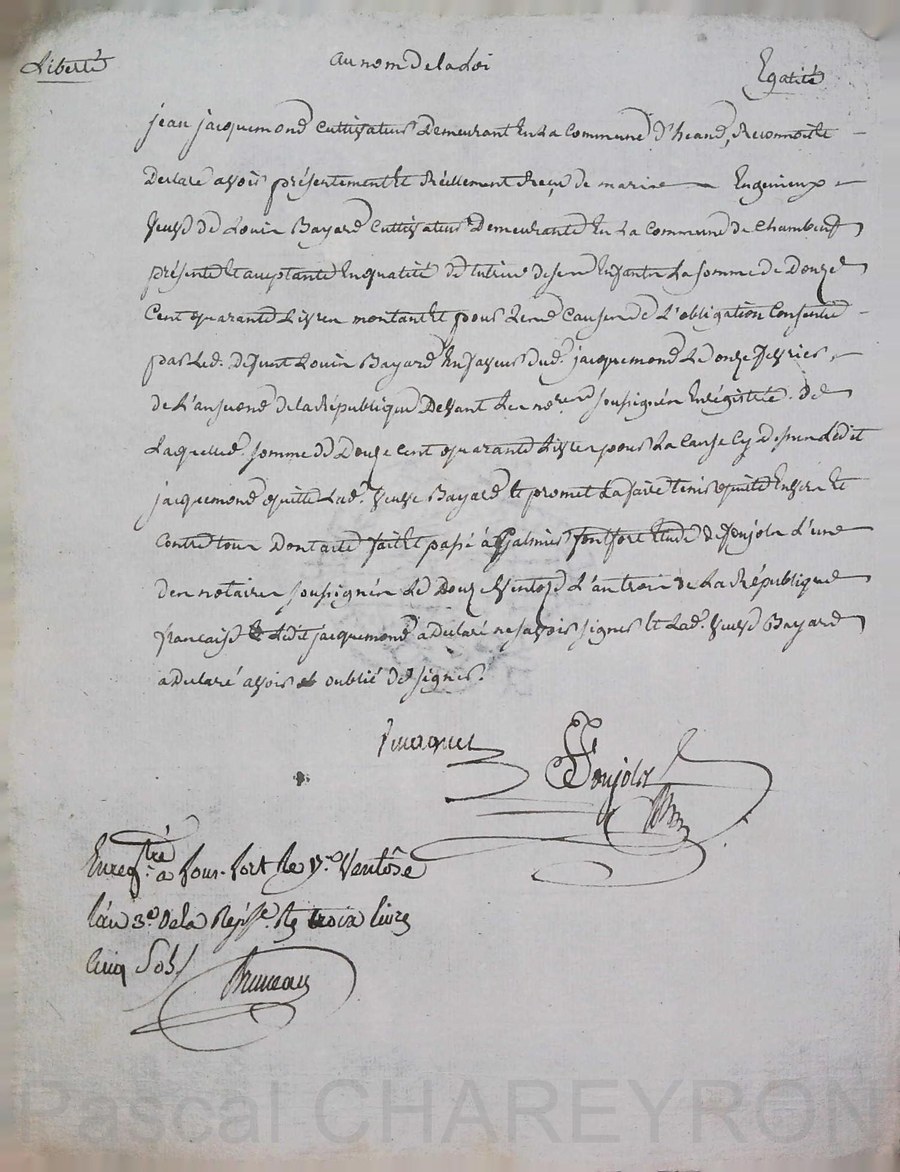 Liberté au nom de la Loi Egalité
jean jacquemond Cultivateur Demeurant En La Commune d'heand, Reconnoit et
Declare avoir présentement Et Réellement Reçu de marie Engenieux
veuve de Louis Bayard Cultivateur Demeurante En La Commune de Chambeuf
présente Et acceptante En qualité de tutrice de ses Enfants La somme de Douze
Cent quarante Livres montant Et pour Les Causes de L'obligation Consentie
par Led. defunt Louis Bayard En faveur dud. jacquemond Le onze fevrier
de L'an second de la République Devant Les no.res soussignés Enregistrée. de
Laquelle somme de Douze cent quarante Livres pour La Cause Cy dessus Ledit
jacquemond quitte Lad. veuve Bayard Et promet La faire tenir quitte Envers Et
Contre tous Dont acte fait Et passé à Galmier fontfort Etude de Denjoln L'un
des notaires soussignés Le Douze Ventose L'an trois de La République
française Ledit jacquemond a declaré ne savoir signer Et Lad. veuve Bayard
a declaré avoir oublié de signer.
Denjoln
Enreg.tré a fonfort le 17.e Ventôse
l'an 3.e de la Rep.se Rç trois livres
cinq Sols
Bruneau
Pascal CHAREYRON